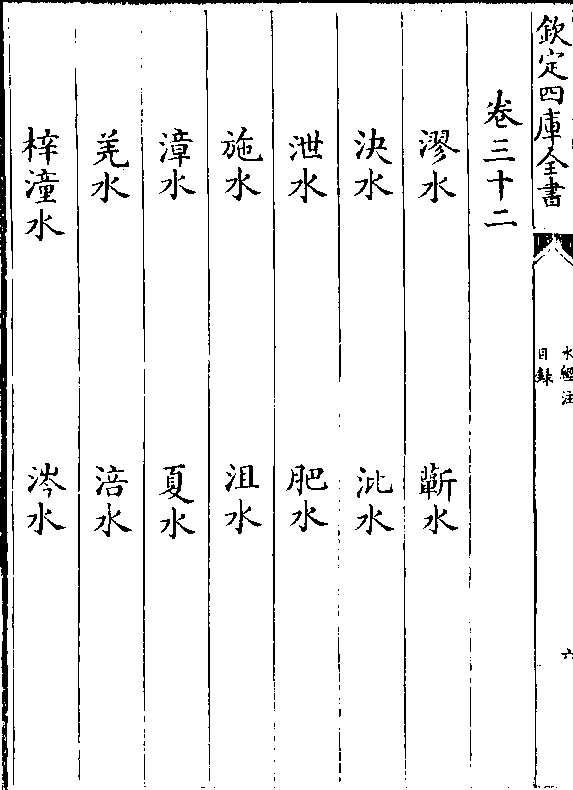 欽定四庫全書
水經注
目録
六
卷三十二
漻水 蘄水
決水 沘水
泄水 肥水
施水 沮水
漳水 夏水
羌水 涪水
梓潼水 涔水